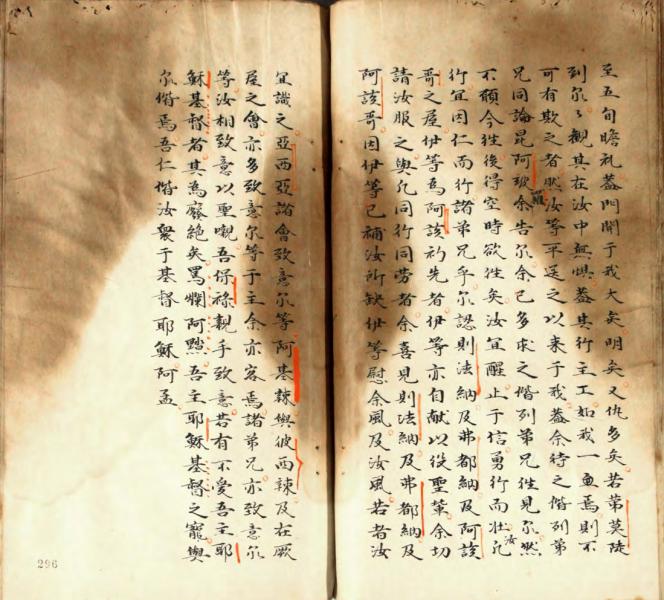 至五旬瞻礼蓋門開于我大矣明矣又仇多矣若第莫陡
到尔々覌其在汝中無惧蓋其行主工如我一魚焉則不
可有欺之者肰汝等平送之以来于我蓋余待之偕列第
兄同論昆阿玻羅余告尔余已多求之偕列弟兄徃見尔然
不願今徃後得空時欲徃矣汝宜醒止于信勇行而壮凢汝
行宜因仁而行諸弟兄乎尔認則法納及弗都納及阿該
哥之屋伊等為阿該礿先者伊等亦自献以役聖軰余切
請汝服之與凢同行同劳者余喜見則法納及弗都納及
阿該哥因伊等已補汝所缺伊等慰余風及汝風若者汝
宜識之亞西亞諸會致意尔等阿基辣與彼西辣及在厥
屋之會亦多致意尔等于主余亦客焉諸弟兄亦致意尔
等汝相致意以聖嚫吾保祿親手致意若有不愛吾主耶
穌基督者其為廢絶矣罵爛阿黙吾主耶穌基督之寵與
尔偕焉吾仁偕汝衆于基督耶穌阿孟
296